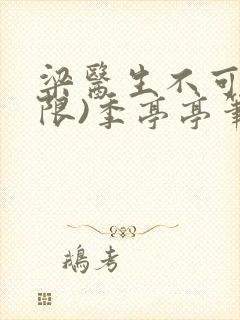 梁醫生不可
限)季亭亭筆
鵝考